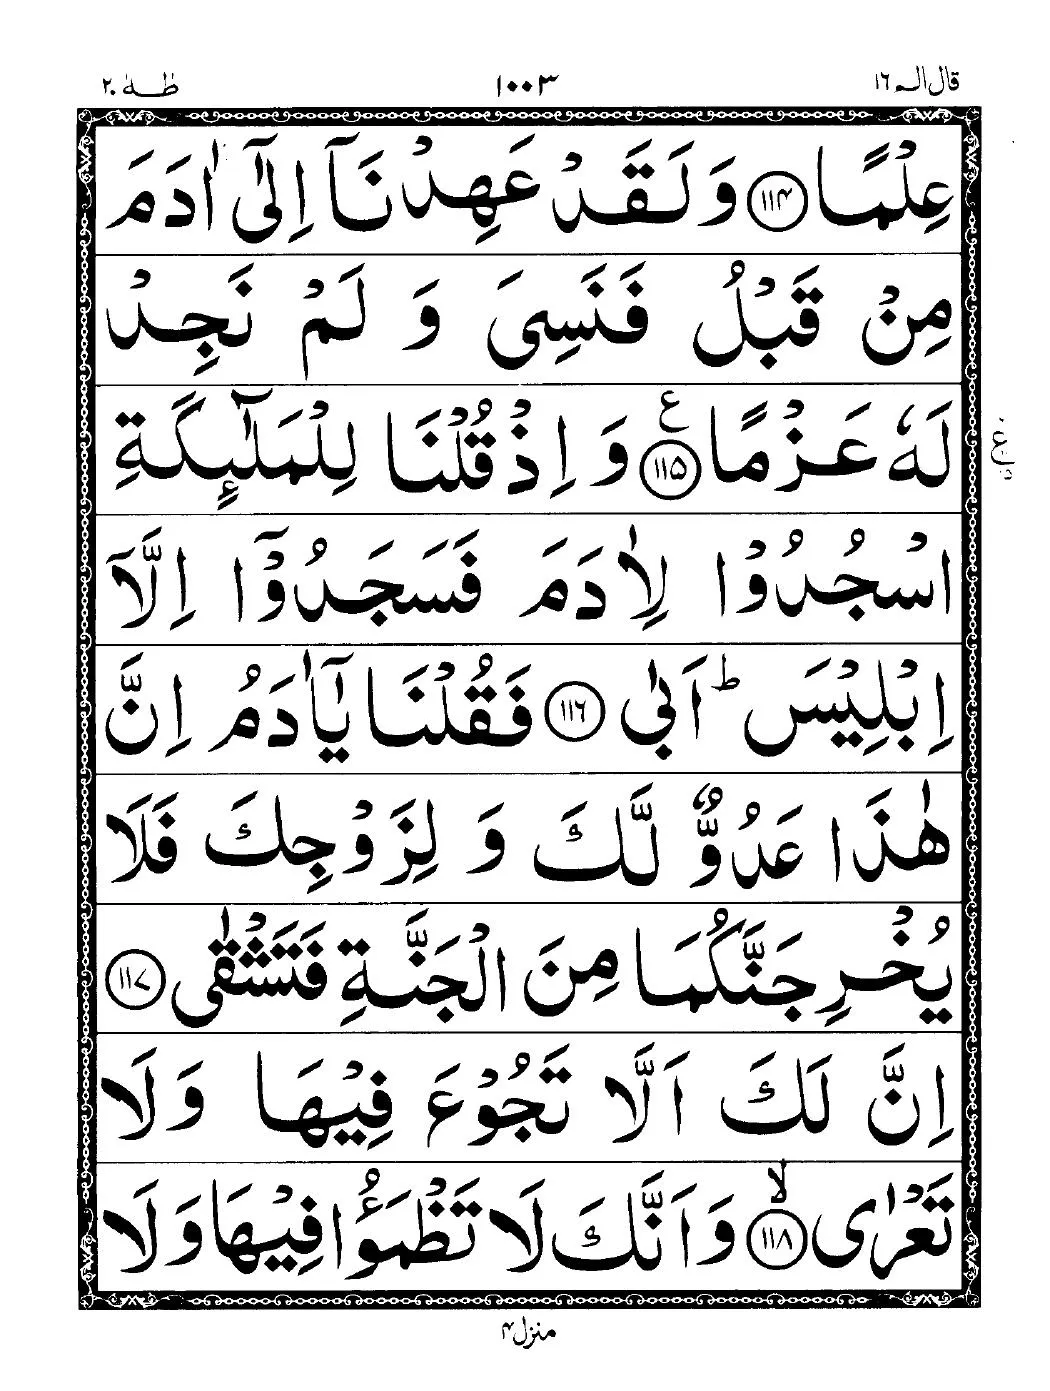 قال الم ١٦ ١٠٠٣ طٰهٰ ٢٠
عِلْمًا ﴿۱۱۴﴾ وَلَقَدْ عَهِدْنَآ اِلٰٓى اٰدَمَ
مِنْ قَبْلُ فَنَسِىَ وَ لَمْ نَجِدْ
لَهٗ عَزْمًا ﴿۱۱۵﴾ ع وَ اِذْ قُلْنَا لِلْمَلٰٓئِكَةِ
اسْجُدُوْا لِاٰدَمَ فَسَجَدُوْٓا اِلَّآ
اِبْلِيْسَ ؕ اَبٰى ﴿۱۱۶﴾ فَقُلْنَا يٰٓاٰدَمُ اِنَّ
هٰذَا عَدُوٌّ لَّكَ وَ لِزَوْجِكَ فَلَا
يُخْرِجَنَّكُمَا مِنَ الْجَنَّةِ فَتَشْقٰى ﴿۱۱۷﴾
اِنَّ لَكَ اَلَّا تَجُوْعَ فِيْهَا وَلَا
تَعْرٰى ﴿۱۱۸﴾ ۙ وَاَنَّكَ لَا تَظْمَؤُا فِيْهَا وَلَا
منزل ۴